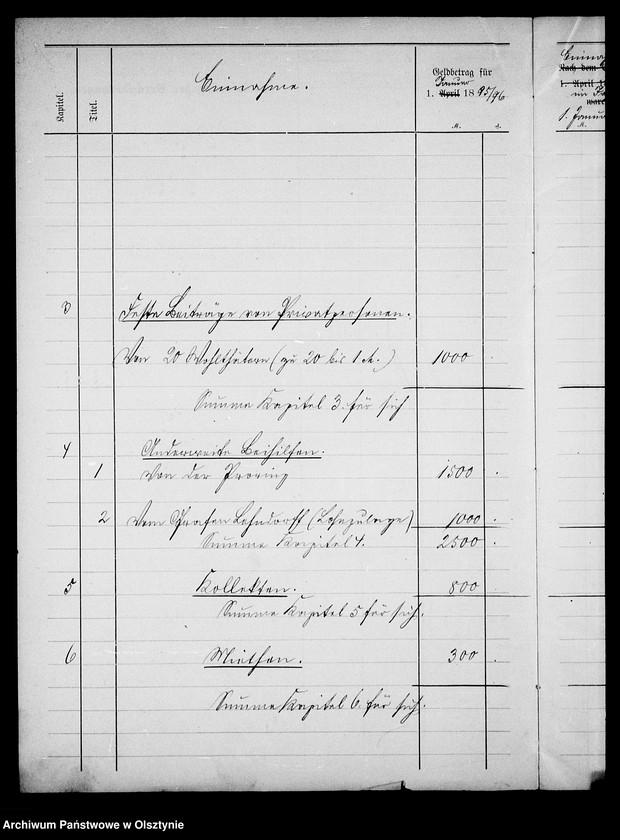 Kapitel.
Titel.
Einnahme.
Geldbetrag für
Januar
1. April 18 95/96
M.
3 Feste Beiträge von Privatpersonen.
Von 20 Wohlthätern (zu 20 bis 1 M.) 1000 .
Summe Kapitel 3. für sich
4 Anderweite Beihilfen.
1 Von der Provinz 1500 .
2 Vom Grafen Lehndorff ( ) 1000 .
Summe Kapitel 4. 2500 .
5 Kollekten. 800 .
Summe Kapitel 5 für sich.
6 Miethen. 300 .
Summe Kapitel 6. für sich.
Nach dem
1. April
1. Janua
M.
Archiwum Państwowe w Olsztynie